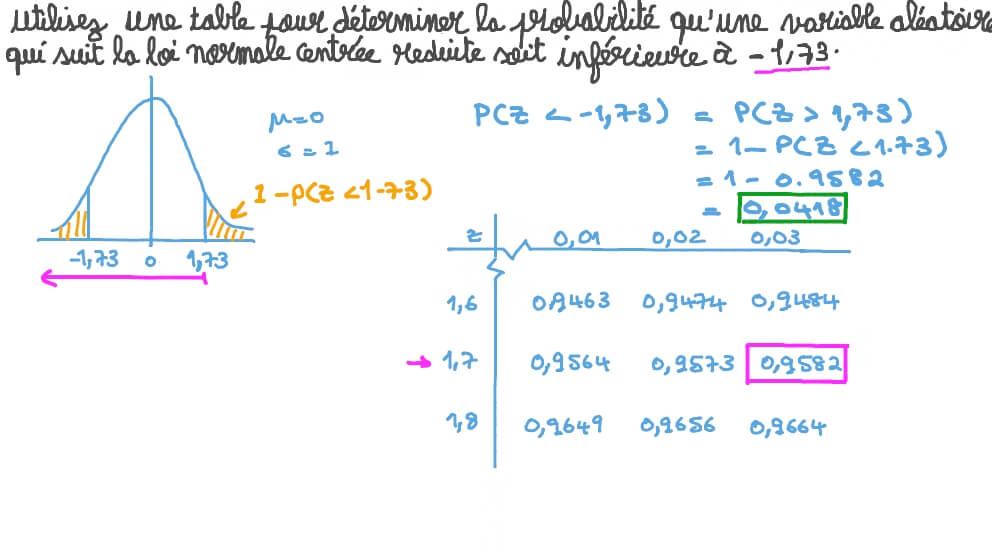 utilisez une table pour déterminer la probabilité qu'une variable aléatoire
qui suit la loi normale centrée reduite soit inférieure à -1,73.
P(Z < -1,73) = P(Z > 1,73)
= 1 - P(Z < 1.73)
= 1 - 0.9582
= 0,0418
μ=0
σ = 1
1 - P(Z < 1-73)
-1,73 0 1,73
z 0,01 0,02 0,03
1,6 0,9463 0,9474 0,9484
→ 1,7 0,9564 0,9573 0,9582
1,8 0,9649 0,9656 0,9664